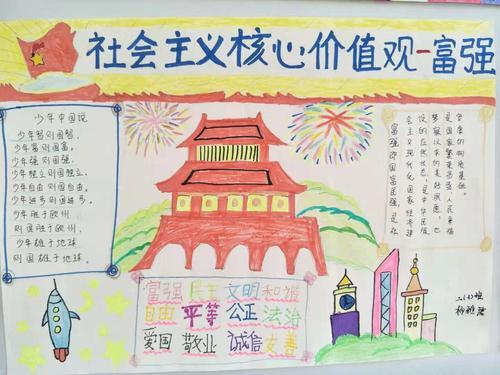 社会主义核心价值观－富强
少年中国说
少年智则国智，
少年富则国富。
少年强则国强，
少年独立则国独立。
少年自由则国自由。
少年进步则国进步。
少年胜于欧州，
则国胜于欧州，
少年雄于地球
则国雄于地球。
富强即国富民强，是社
会主义现代化国家经济建
设的应然状态，是中华民族
梦寐以求的美好夙愿，也
是国家繁荣昌盛、人民幸福
安康的物质基础。
富强 民主 文明 和谐
自由 平等 公正 法治
爱国 敬业 诚信 友善